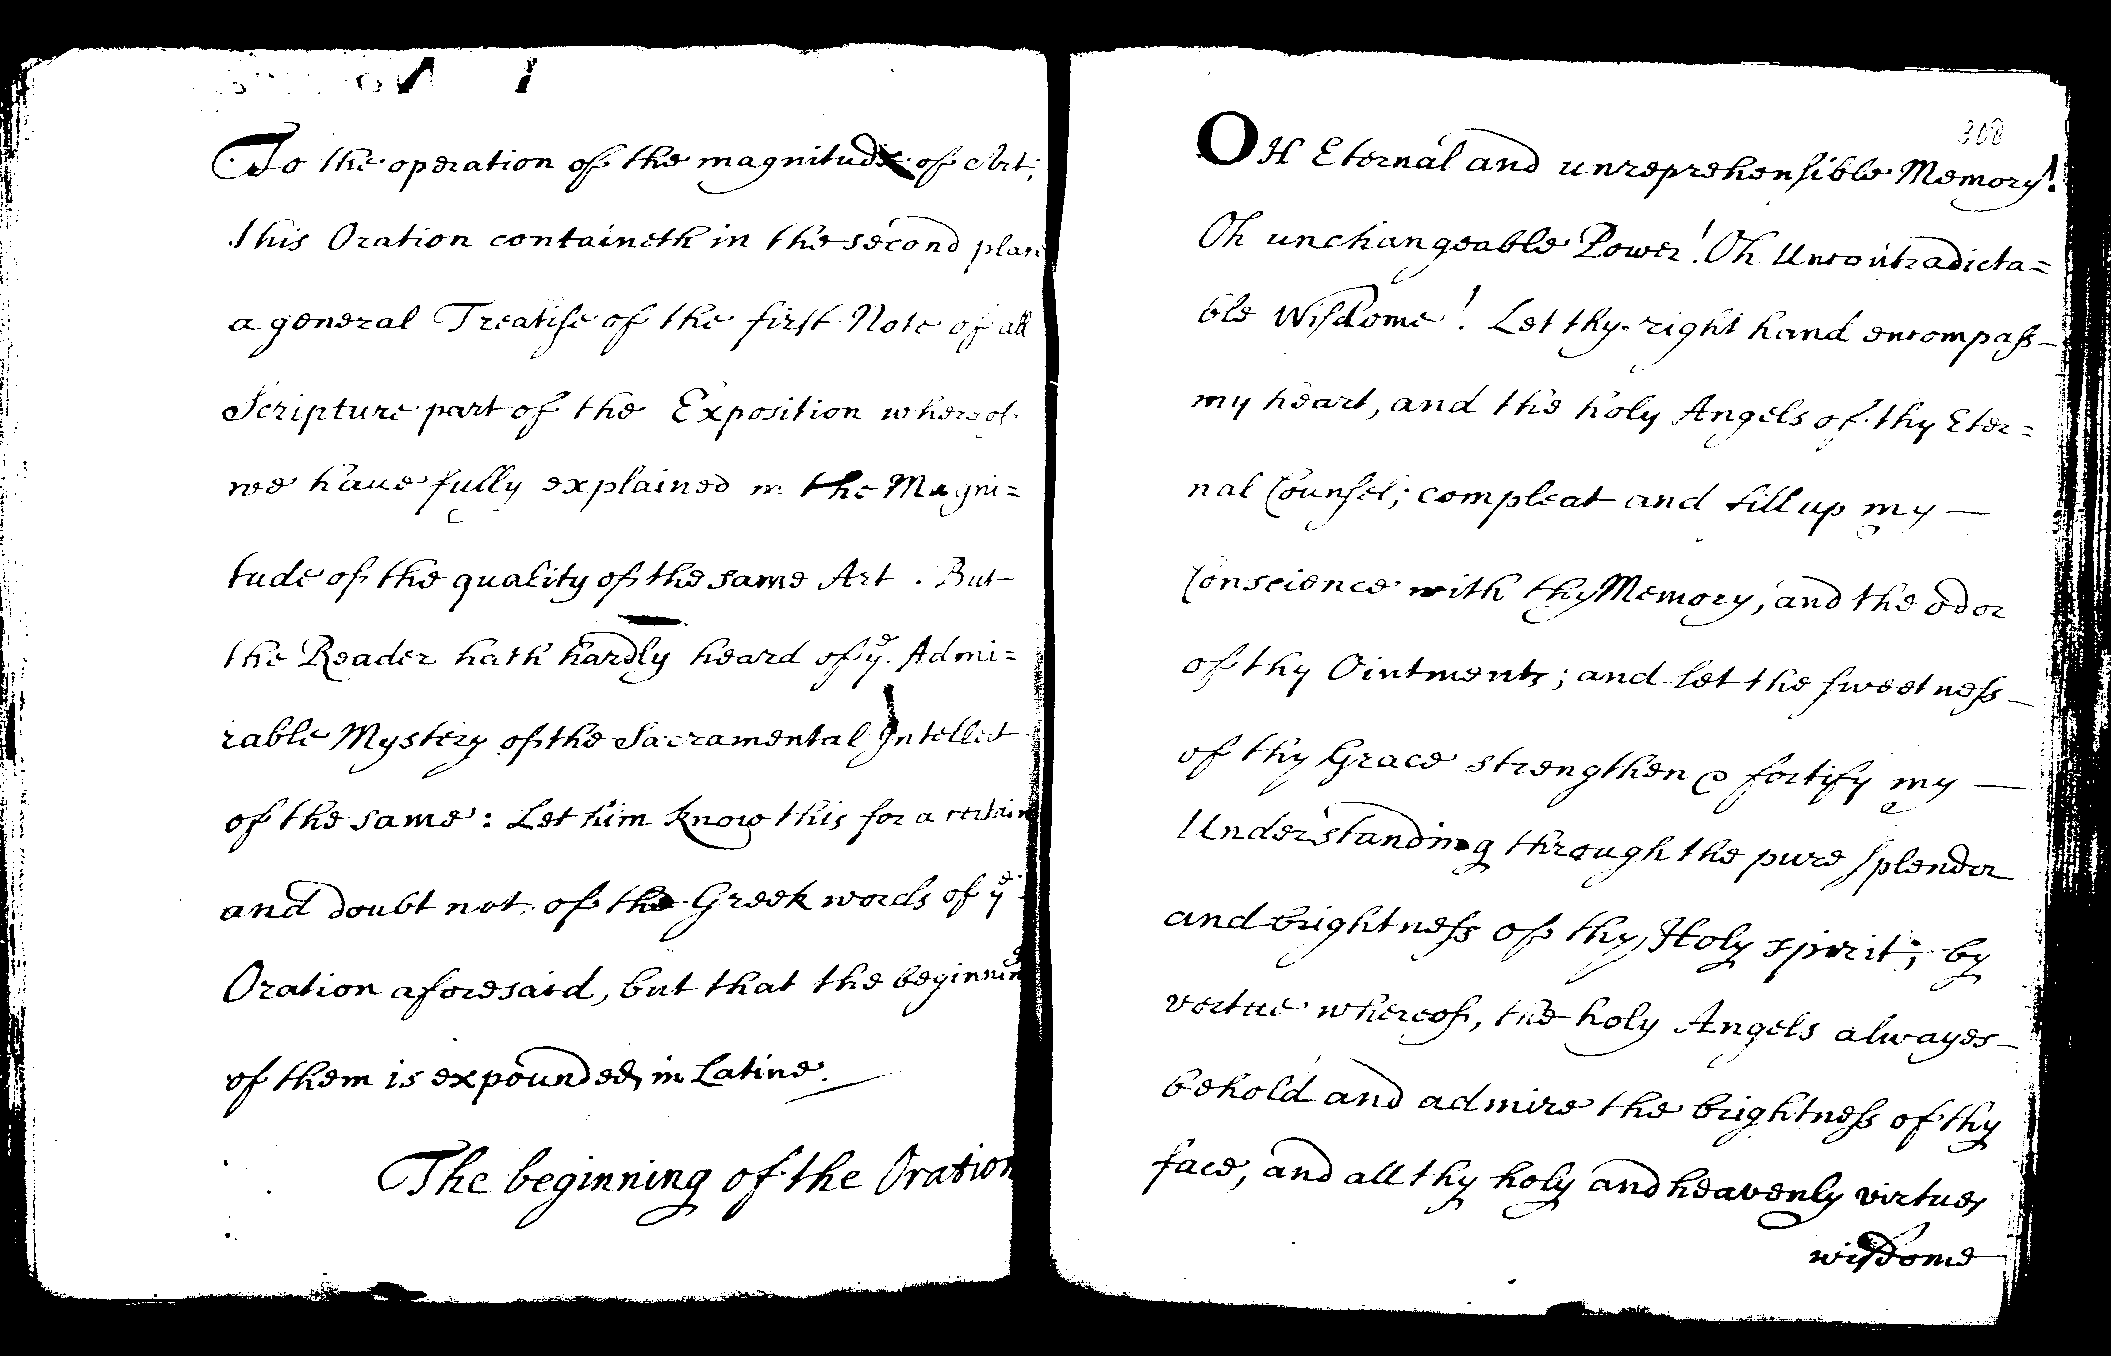 To the operation of the magnitude of Art;
this Oration containeth in the second place
a general Treatise of the first Note of all
Scripture part of the Exposition whereof
we haue fully explained in the Magni=
tude of the quality of the same Art. But
the Reader hath hardly heard of yͤ. Admi=
rable Mystery of the Sacramental Intellect
of the same: Let him know this for a certain
and doubt not of the Greek words of yͤ
Oration aforesaid, but that the beginning
of them is expounded in Latine.
The beginning of the Oration
308
OH Eternal and unreprehensible Memory!
Oh unchangeable Power! Oh Uncontradicta=
ble Wisdome! Let thy right hand encompass
my heart, and the holy Angels of thy Eter=
nal Counsel; compleat and fill up my —
Conscience with thy Memory, and the odor
of thy Ointments; and let the sweetness
of thy Grace strengthen & fortify my —
Understanding through the pure splendor
and brightness of thy Holy spirit; by
vertue whereof, the holy Angels alwayes
behold and admire the brightness of thy
face, and all thy holy and heavenly virtues
wisdome